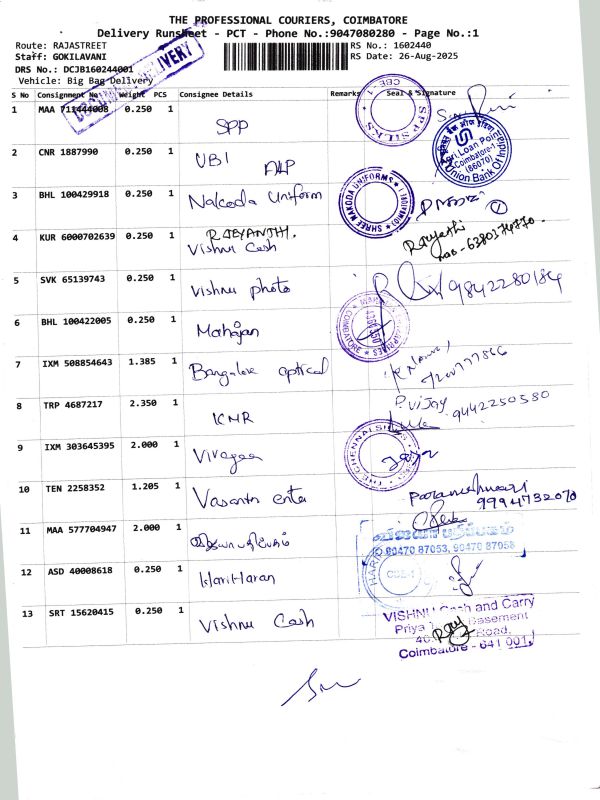 THE PROFESSIONAL COURIERS, COIMBATORE
Delivery Runsheet - PCT - Phone No.:9047080280 - Page No.:1
Route: RAJASTREET
RS No.: 1602440
Staff: GOKILAVANI
RS Date: 26-Aug-2025
DRS No.: DCJB160244001
Vehicle: Big Bag Delivery
DELIVERY
S No Consignment No. Weight PCS Consignee Details Remarks Seal & Signature
1 MAA 711444008 0.250 1 SPP
CBE-1
SPP SILKS
2 CNR 1887990 0.250 1 UBI
Coimbatore-1
(66070)
Union Bank Of India
3 BHL 100429918 0.250 1 Nakoda Uniform
SHREE NAKODA UNIFORMS
4 KUR 6000702639 0.250 1 Vishnu Cash
6380174870
5 SVK 65139743 0.250 1 Vishnu photo
9842280184
6 BHL 100422005 0.250 1 Mahajan
COIMBATORE
7 IXM 508854643 1.385 1 Bangalore optical
8 TRP 4687217 2.350 1 KMR
Vijay
9442250580
9 IXM 303645395 2.000 1
THE CHENNAI SILKS
Jaya
10 TEN 2258352 1.205 1 Vasanth enta
Parameshwari
9994732070
11 MAA 577704947 2.000 1
விஜயா பதிப்பகம்
90470 87053, 90470 87058
12 ASD 40008618 0.250 1 HariHaran
CBE-1
13 SRT 15620415 0.250 1 Vishnu Cash
VISHNU Cash and Carry
Priya Basement
Road,
Coimbatore - 641 001.